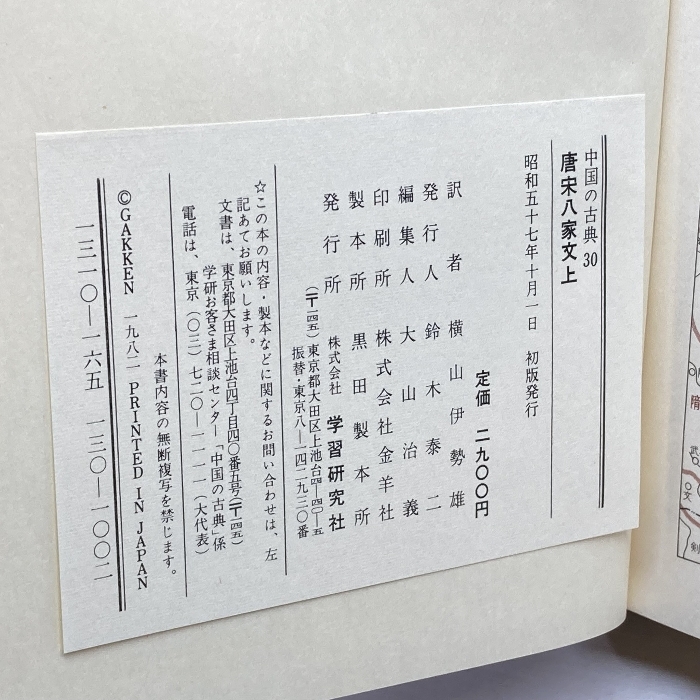 中国の古典 30
唐宋八家文 上
昭和五十七年十月一日 初版発行
定価 二九〇〇円
訳者 横山伊勢雄
発行人 鈴木泰二
編集人 大山治義
印刷所 株式会社金羊社
製本所 黒田製本所
発行所 株式会社 学習研究社
(〒一四五) 東京都大田区上池台四―四〇―五
振替・東京八―一四二九三〇番
☆この本の内容・製本などに関するお問い合わせは、左
記あてお願いします。
文書は、東京都大田区上池台四丁目四〇番五号(〒一四五)
学研お客さま相談センター「中国の古典」係
電話は、東京(〇三)七二〇―一一一一(大代表)
本書内容の無断複写を禁じます。
©GAKKEN 一九八二 PRINTED IN JAPAN
一三一〇―一六五一三〇―一〇〇二